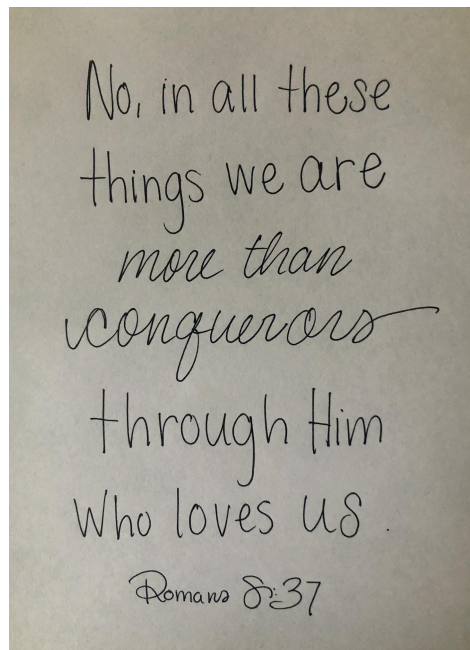 No, in all these
things we are
more than
conquerors
through Him
who loves us.
Romans 8:37